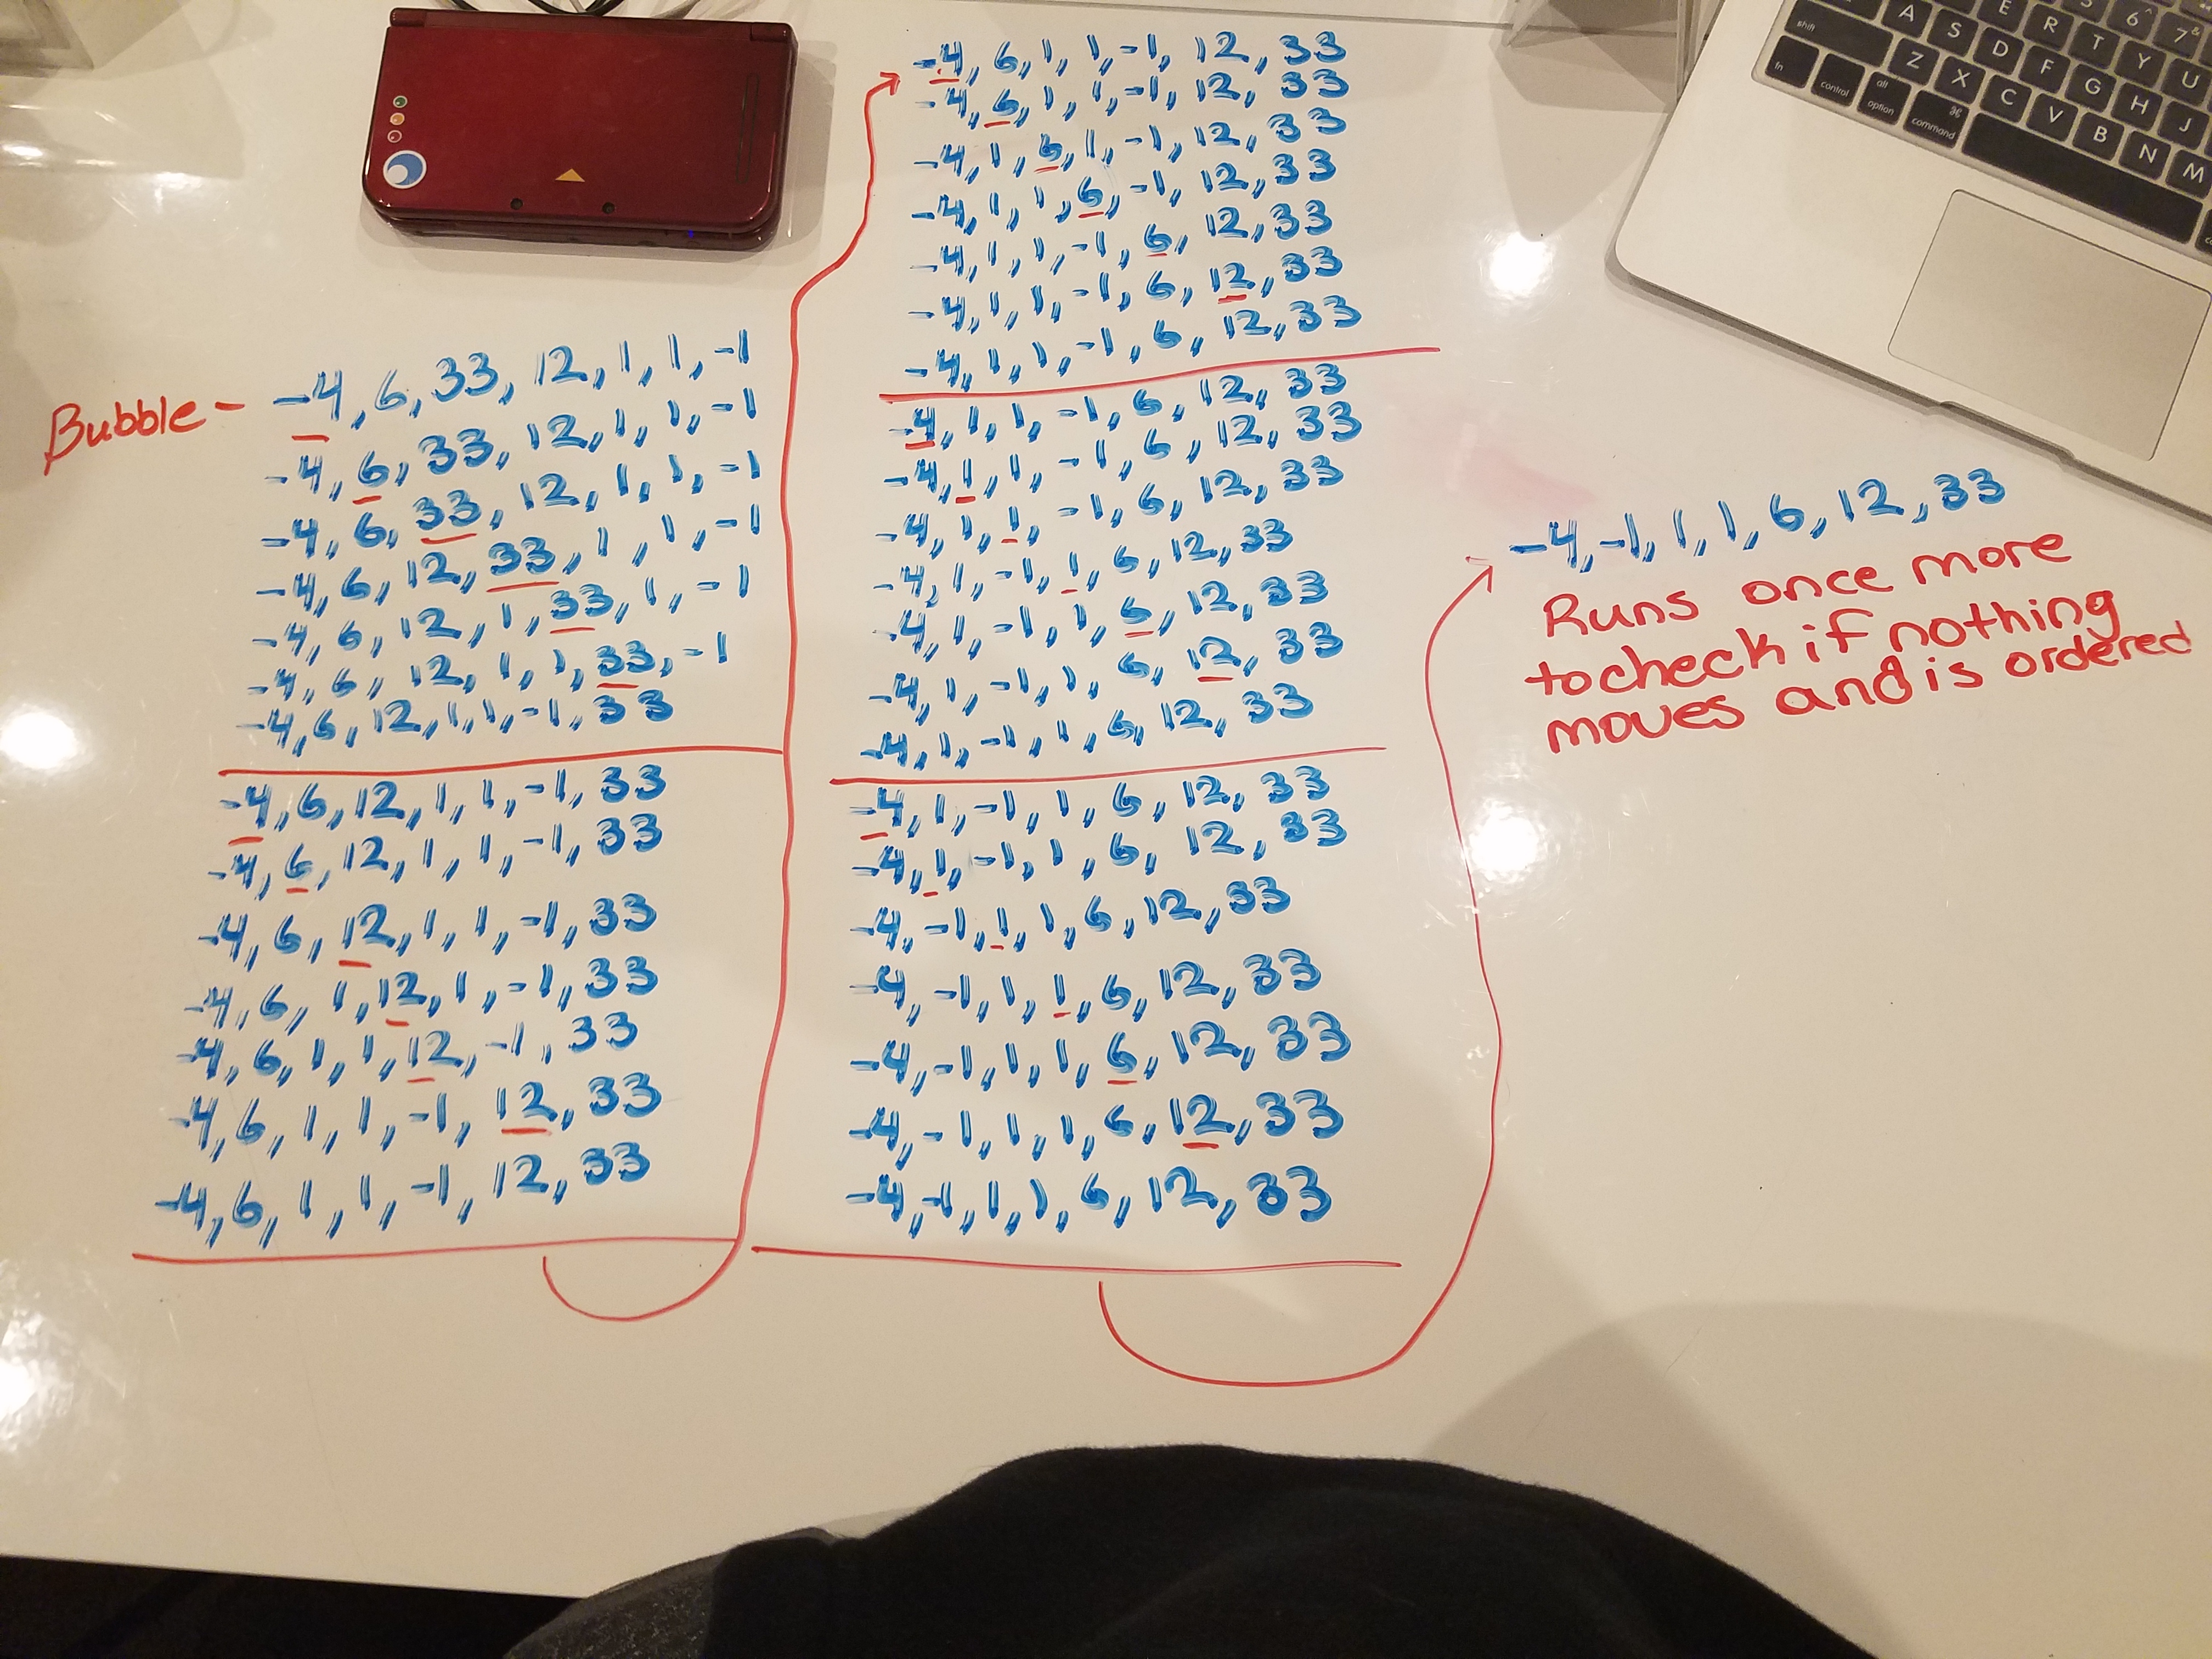 Bubble - -4, 6, 33, 12, 1, 1, -1
-4, 6, 33, 12, 1, 1, -1
-4, 6, 33, 12, 1, 1, -1
-4, 6, 12, 33, 1, 1, -1
-4, 6, 12, 1, 33, 1, -1
-4, 6, 12, 1, 1, 33, -1
-4, 6, 12, 1, 1, -1, 33
-4, 6, 12, 1, 1, -1, 33
-4, 6, 12, 1, 1, -1, 33
-4, 6, 12, 1, 1, -1, 33
-4, 6, 1, 12, 1, -1, 33
-4, 6, 1, 1, 12, -1, 33
-4, 6, 1, 1, -1, 12, 33
-4, 6, 1, 1, -1, 12, 33
-4, 6, 1, 1, -1, 12, 33
-4, 6, 1, 1, -1, 12, 33
-4, 1, 6, 1, -1, 12, 33
-4, 1, 1, 6, -1, 12, 33
-4, 1, 1, -1, 6, 12, 33
-4, 1, 1, -1, 6, 12, 33
-4, 1, 1, -1, 6, 12, 33
-4, 1, 1, -1, 6, 12, 33
-4, 1, 1, -1, 6, 12, 33
-4, 1, 1, -1, 6, 12, 33
-4, 1, -1, 1, 6, 12, 33
-4, 1, -1, 1, 6, 12, 33
-4, 1, -1, 1, 6, 12, 33
-4, 1, -1, 1, 6, 12, 33
-4, 1, -1, 1, 6, 12, 33
-4, 1, -1, 1, 6, 12, 33
-4, -1, 1, 1, 6, 12, 33
-4, -1, 1, 1, 6, 12, 33
-4, -1, 1, 1, 6, 12, 33
-4, -1, 1, 1, 6, 12, 33
-4, -1, 1, 1, 6, 12, 33
-4, -1, 1, 1, 6, 12, 33
Runs once more
to check if nothing
moves and is ordered
E R T Y U
A S D F G H J
shift Z X C V B N M
fn control alt option ⌘ command